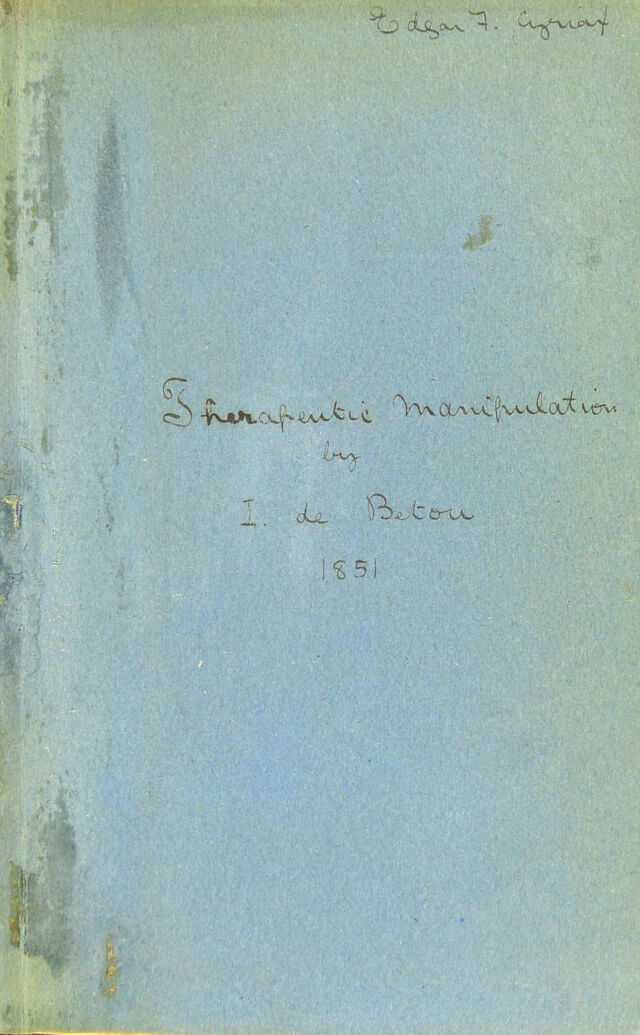 Edgar F. Cyriax
Therapeutic Manipulation
by
I. de Betou
1851